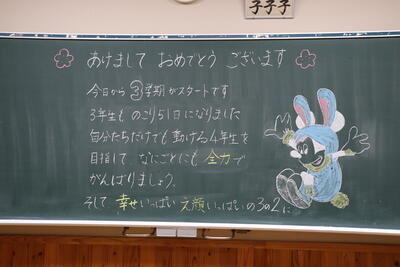 子子子
あけまして おめでとう ございます
今日から③学期がスタートです
3年生も のこり51日になりました
自分たちだけでも動ける4年生を
目指して、なにごとにも全力で
がんばりましょう。
そして 幸せいっぱい 笑顔いっぱいの3の2に